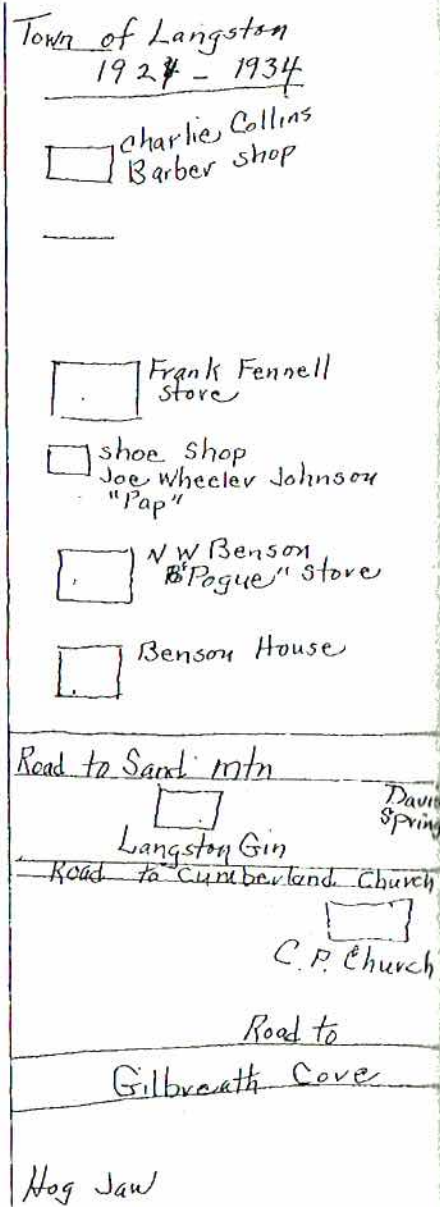 Town of Langston
1924 - 1934
Charlie Collins
Barber shop
Frank Fennell
Store
shoe Shop
Joe Wheeler Johnson
"Pap"
N W Benson
"Pogue" Store
Benson House
Road to Sand mtn
Davis
Spring
Langston Gin
Road to Cumberland Church
C. P. Church
Road to
Gilbreath Cove
Hog Jaw